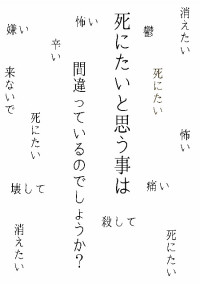 消えたい
鬱
怖い
嫌い
辛い
死にたいと思う事は
間違っているのでしょうか？
死にたい
来ないで
死にたい
怖い
痛い
壊して
殺して
死にたい
消えたい